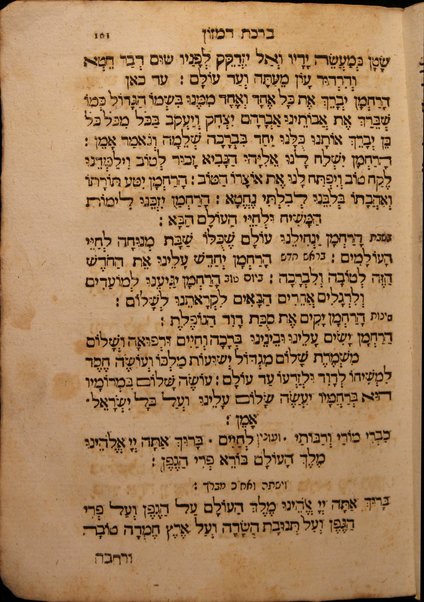 ברכת המזון 161
שָׂטָן בְּמַעֲשֵׂה יָדָיו וְאַל יִזְדַּקֵּק לְפָנָיו שׁוּם דְּבַר חֵטְא
וְהִרְהוּר עָוֹן מֵעַתָּה וְעַד עוֹלָם : עד כאן
הָרַחֲמָן יְבָרֵךְ אֶת כָּל אֶחָד וְאֶחָד מִמֶּנּוּ בִּשְׁמוֹ הַגָּדוֹל כְּמוֹ
שֶׁבֵּרַךְ אֶת אֲבוֹתֵינוּ אַבְרָהָם יִצְחָק וְיַעֲקֹב בַּכֹּל מִכֹּל כֹּל
כֵּן יְבָרֵךְ אוֹתָנוּ כֻּלָּנוּ יַחַד בִּבְרָכָה שְׁלֵמָה וְנֹאמַר אָמֵן :
הָרַחֲמָן יִשְׁלַח לָנוּ אֵלִיָּהוּ הַנָּבִיא זָכוּר לְטוֹב וִילַמְּדֵנוּ
לֶקַח טוֹב וְיִפְתַּח לָנוּ אֶת אוֹצָרוֹ הַטּוֹב : הָרַחֲמָן יִטַּע תּוֹרָתוֹ
וְאַהֲבָתוֹ בְּלִבֵּנוּ לְבִלְתִּי נֶחֱטָא : הָרַחֲמָן יְזַכֵּנוּ לִימוֹת
הַמָּשִׁיחַ וּלְחַיֵּי הָעוֹלָם הַבָּא :
בשבת הָרַחֲמָן יַנְחִילֵנוּ עוֹלָם שֶׁכֻּלּוֹ שַׁבָּת מְנוּחָה לְחַיֵּי
הָעוֹלָמִים : בראש חדש הָרַחֲמָן יְחַדֵּשׁ עָלֵינוּ אֶת הַחֹדֶשׁ
הַזֶּה לְטוֹבָה וְלִבְרָכָה : ביום טוב הָרַחֲמָן יַגִּיעֵנוּ לְמוֹעֲדִים
וְלִרְגָלִים אֲחֵרִים הַבָּאִים לִקְרָאתֵנוּ לְשָׁלוֹם :
סוכות הָרַחֲמָן יָקִים אֶת סֻכַּת דָּוִד הַנּוֹפֶלֶת :
הָרַחֲמָן יָשִׂים עָלֵינוּ וּבֵינֵינוּ בְּרָכָה וְחַיִּים וּרְפוּאָה וְשָׁלוֹם
מִשְׁמֶרֶת שָׁלוֹם מִגְדּוֹל יְשׁוּעוֹת מַלְכּוֹ וְעוֹשֶׂה חֶסֶד
לִמְשִׁיחוֹ לְדָוִד וּלְזַרְעוֹ עַד עוֹלָם : עוֹשֶׂה שָׁלוֹם בִּמְרוֹמָיו
הוּא בְּרַחֲמָיו יַעֲשֶׂה שָׁלוֹם עָלֵינוּ וְעַל כָּל יִשְׂרָאֵל
אָמֵן :
סַבְרִי מוֹרַי וְרַבּוֹתַי ועונין לְחַיִּים . בָּרוּךְ אַתָּה יְיָ אֱלֹהֵינוּ
מֶלֶךְ הָעוֹלָם בּוֹרֵא פְּרִי הַגֶּפֶן :
וישתה ואח"כ מברך :
בָּרוּךְ אַתָּה יְיָ אֱלֹהֵינוּ מֶלֶךְ הָעוֹלָם עַל הַגֶּפֶן וְעַל פְּרִי
הַגֶּפֶן וְעַל תְּנוּבַת הַשָּׂדֶה וְעַל אֶרֶץ חֶמְדָּה טוֹבָה
ורחבה